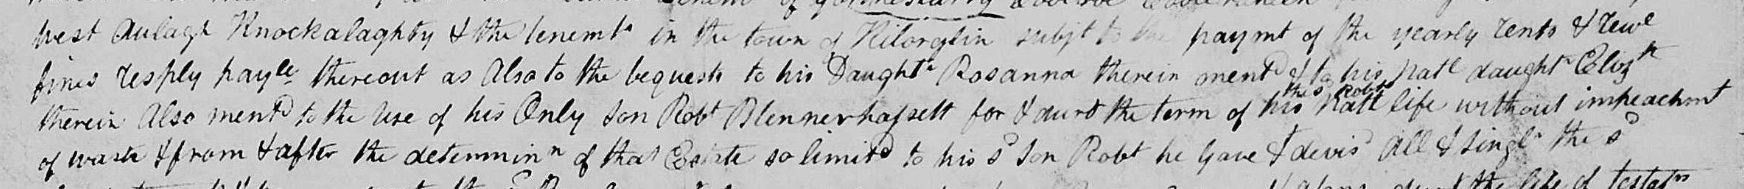 west Aulagh Knockalaghty & the tenemts in the town of Kilorglin subjt to the paymt of the yearly rents & renewl
fines resply payle thereout as Also to the bequests to his Daughtr Rosanna therein mentd & to his Natl daughtr Elizth
therein Also mentd to the Use of his Only Son Robt Blennerhassett for & durg the term of his the sd Robts Natl life without impeachmt
of waste & from & after the determinn of that Estate so limitd to his sd Son Robt he Gave & devisd All & Singlr the sd
the life of testatrs